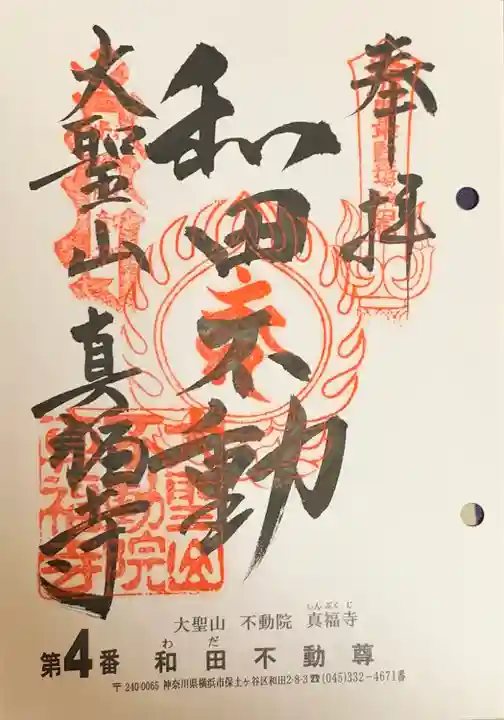 奉拝
和田不動
大聖山 真福寺
大聖山 不動院 真福寺
しんぷくじ
第4番 和田不動尊
わだ
〒240-0065 神奈川県横浜市保土ヶ谷区和田2-8-3☎(045)332-4671番